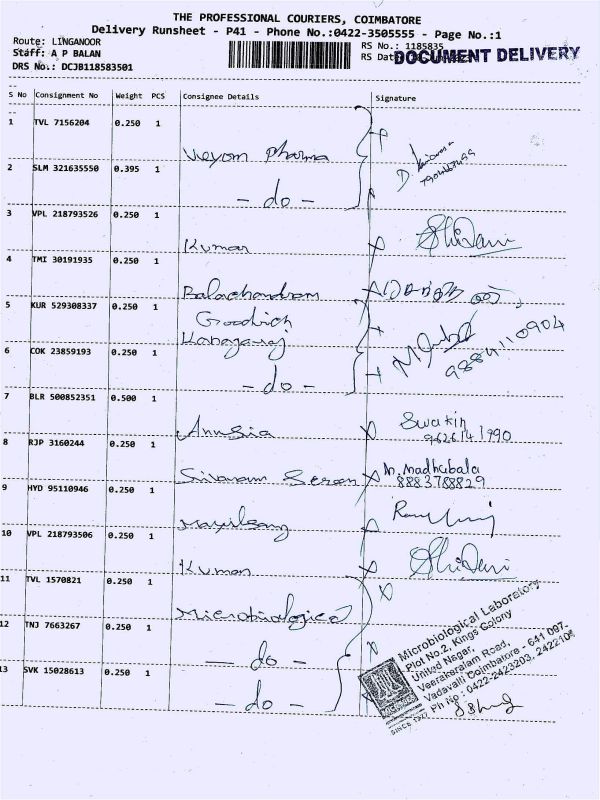 THE PROFESSIONAL COURIERS, COIMBATORE
Delivery Runsheet - P41 - Phone No.:0422-3505555 - Page No.:1
Route: LINGANOOR
RS No.: 1185835
Staff: A P BALAN
RS Dat
DOCUMENT DELIVERY
DRS No.: DCJB118583501
S No Consignment No Weight PCS Consignee Details Signature
1 TVL 7156204 0.250 1
Veyom Pharma
2 SLM 321635550 0.395 1
- do -
3 VPL 218793526 0.250 1
Kumar
4 TMI 30191935 0.250 1
Balachandram
5 KUR 529308337 0.250 1
Goodrich
Kanagaraj
9884110904
6 COK 23859193 0.250 1
- do -
7 BLR 500852351 0.500 1
Anusia
Swakin
9626141990
8 RJP 3160244 0.250 1
M. Madhubala
8883788829
9 HYD 95110946 0.250 1
10 VPL 218793506 0.250 1
Kumar
11 TVL 1570821 0.250 1
Microbiological
12 TNJ 7663267 0.250 1
- do -
13 SVK 15028613 0.250 1
- do -
Microbiological Laboratory
Plot No.2, Kings Colony
United Nagar,
Veerakeralam Road,
Vadavalli Coimbatore - 641 097.
Ph No : 0422-2423203, 2422108
SINCE 1927